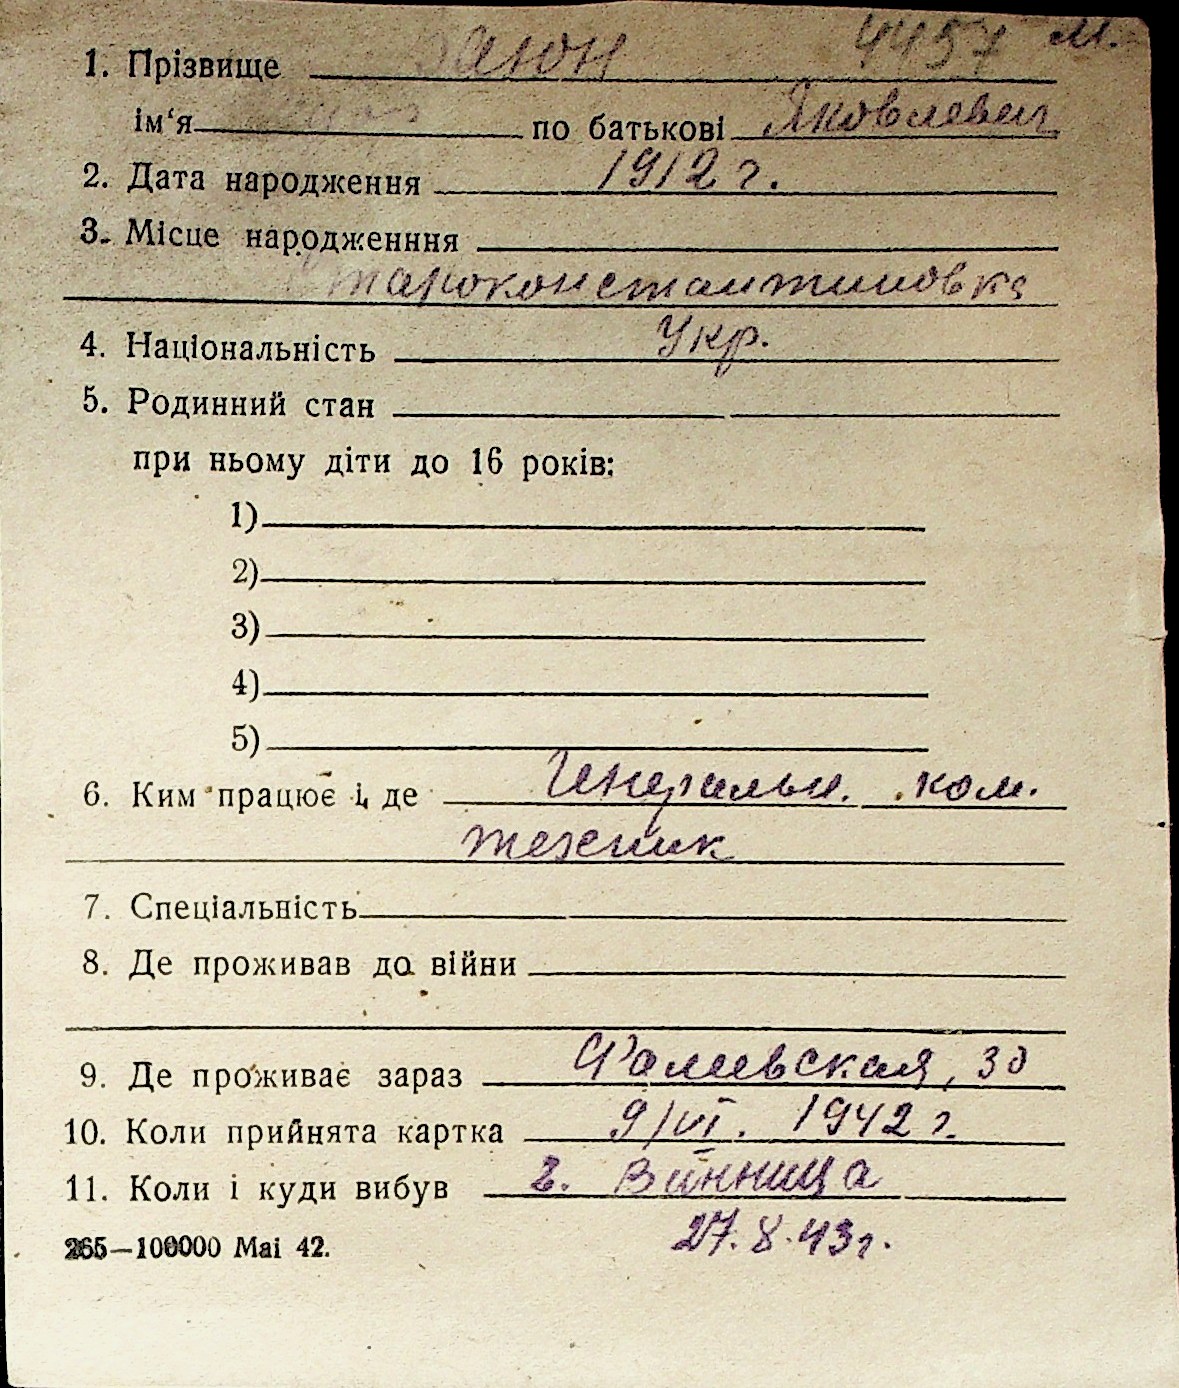 4457 м.
1. Прізвище
ім‘я по батькові Яковлевич
2. Дата народження 1912 г.
3. Місце народженння
Староконстантиновка
4. Національність Укр.
5. Родинний стан
при ньому діти до 16 років:
1)
2)
3)
4)
5)
6. Ким працює і, де Генеральн. ком.
техник
7. Спеціальність
8. Де проживав до війни
9. Де проживає зараз Фалеевская, 30
10. Коли прийнята картка 9/VI. 1942 г.
11. Коли і куди вибув г. Винница
27.8.43г.
265—100000 Mai 42.